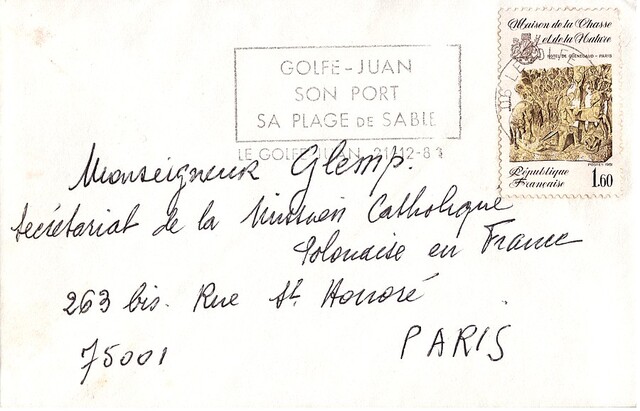 Maison de la Chasse
et de la Nature
HOTEL DE GUENEGAUD - PARIS
GOLFE-JUAN
SON PORT
SA PLAGE DE SABLE
LE GOLFE JUAN 21-12-83
République
Française
1.60
Monseigneur Glemp.
Secrétariat de la Mission Catholique
Polonaise en France
263 bis. Rue St. Honoré
75001
PARIS